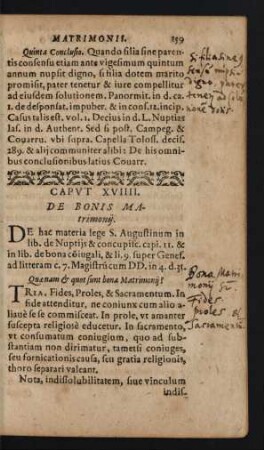 MATRIMONII. 159
Quinta Conclusio. Quando filia sine paren-
tis consensu etiam ante vigesimum quintum
annum nupsit digno, si filia dotem marito
promisit, pater tenetur & iure compellitur
ad eiusdem solutionem. Panormit. in d. ca.
1. de desponsat. impuber. & in cons. 12. incip.
Casus talis est. vol. 1. Decius in d. L. Nuptiæ
Ias. in d. Authent. Sed si post. Campeg. &
Couarru. vbi supra. Capella Tolosf. decis.
289. & alij communiter alibi: De his omni-
bus conclusionibus latius Couarr.
CAPVT XVIIII.
DE BONIS MA-
trimonij.
DE hac materia lege S. Augustinum in
lib. de Nuptijs & concupisc. capi. 11. &
in lib. de bono cõiugali, & li. 9. super Genes.
ad litteram c. 7. Magistrũ cum DD. in 4. d. 31.
Quænam & quot sint bona Matrimonij?
TRIA. Fides, Proles, & Sacramentum. In
fide attenditur, ne coniunx cum alio a-
liaue se se commisceat. In prole, vt amanter
suscepta religiosè educetur. In sacramento,
vt consumatum coniugium, quo ad sub-
stantiam non dirimatur, tametsi coniuges,
seu fornicationis causa, seu gratia religionis,
thoro separari valeant.
Nota, indissolubilitatem, siue vinculum
indis-
Si filia sine
digno
Bona Matri-
monij
Fides
proles &
Sacramentũ